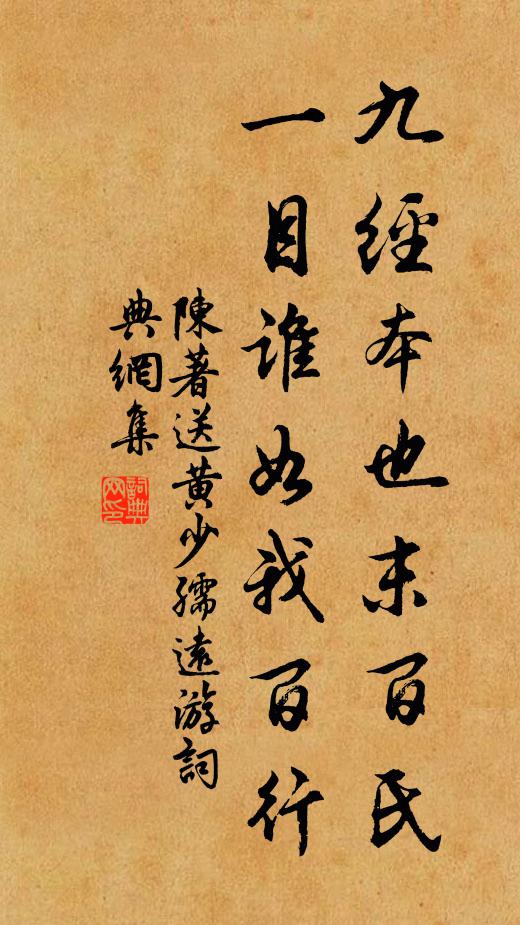 九經本也末百氏
一目誰如我百行
陳著送黄少孺遠游詞
典網集
詞典網印